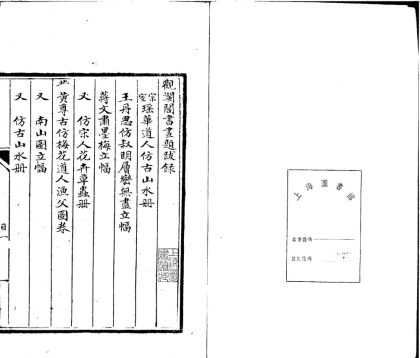 上海圖書館
索書號碼
登記號碼
觀瀾閣書畫題跋錄
宗室瑤華道人仿古山水册
王丹思仿叔明層巒無盡立幅
蔣文肅墨梅立幅
又 仿宋人花卉草蟲册
黃尊古仿梅花道人漁父圖卷
又 南山圖立幅
又 仿古山水册
目